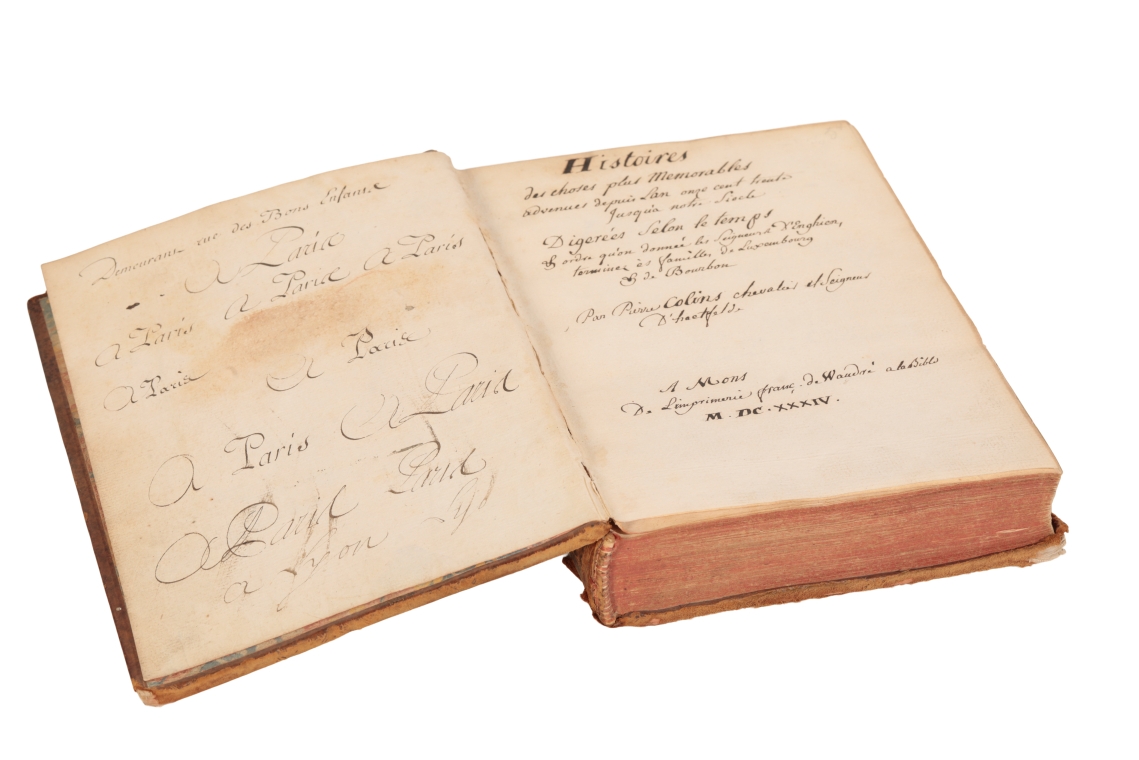 Demeurant rue des Bons Enfans
A Paris
A Paris A Paris
A Paris
A Paris A Paris
A Paris
A Paris
A Paris Paris
a Lyon
Histoires
des choses plus Memorables
advenues depuis Lan onze cent trente
Jusqu'a notre Siecle
Digerées Selon le temps
& ordre qu'on donnée les Seigneurs D'Enghien,
terminez ès familles de Luxembourg
& de Bourbon
Par Pierre Colins chevalier et Seigneur
D'heetfelde
A Mons
De L'imprimerie franç. de Waudré a la Bible
M. DC. XXXIV.